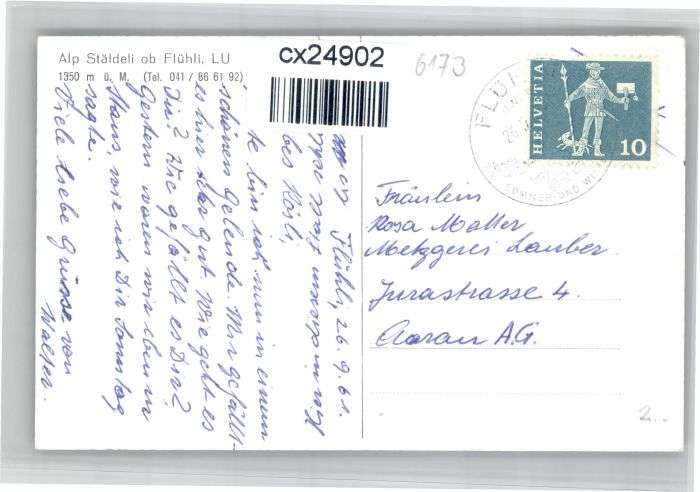 Alp Stäldeli ob Flühli, LU
1350 m ü. M. (Tel. 041 / 86 61 92)
cx24902
6173
FLÜHLI
SOMMER UND WINTER
HELVETIA
10
Flühli, 26.9.61.
bes Rösli,
te bin ich nun in einem
schönen Gelende. Mir gefällt
es hier sehr gut. Wie geht es
Dir? Wie gefällt es Dir?
Gestern waren wir eben in
Stans, wie ich Dir Sonntag
sagte.
Viele liebe Grüsse von
Walter.
Fräulein
Rosa Matter
Metzgerei Lauber
Jurastrasse 4.
Aarau A.G.
2..